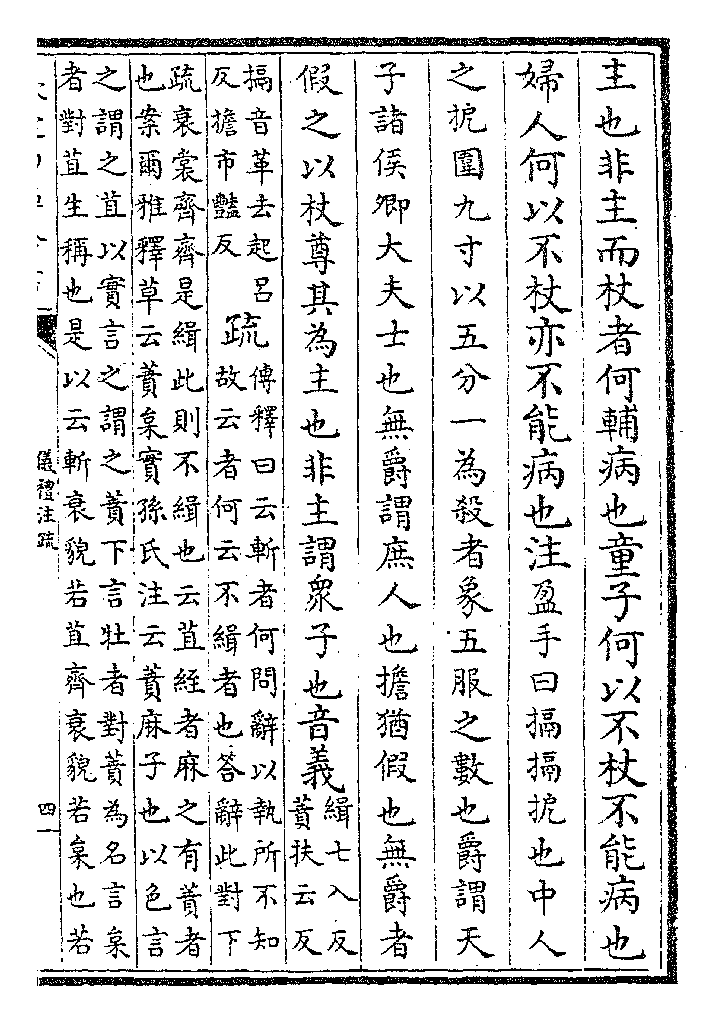 主也非主而杖者何輔病也童子何以不杖不能病也
婦人何以不杖亦不能病也注盈手曰搹搹扼也中人
之扼圍九寸以五分一為殺者象五服之數也爵謂天
子諸侯卿大夫士也無爵謂庶人也擔猶假也無爵者
假之以杖尊其為主也非主謂衆子也音義緝七入反
蕡扶云反
搹音革去起呂
反擔市豔反
疏傳釋曰云斬者何問辭以執所不知
故云者何云不緝者也答辭此對下
疏衰裳齊齊是緝此則不緝也云苴絰者麻之有蕡者
也案爾雅釋草云蕡枲實孫氏注云蕡麻子也以色言
之謂之苴以實言之謂之蕡下言牡者對蕡為名言枲
者對苴生稱也是以云斬衰貌若苴齊衰貌若枲也若
儀禮注疏
四一